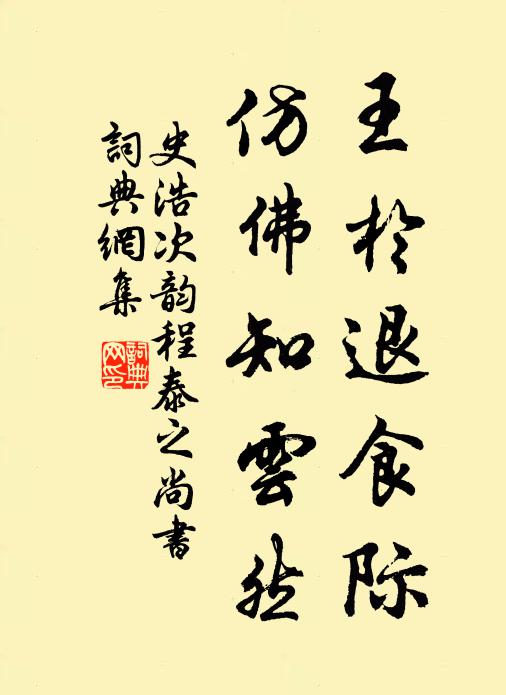 王於退食际
仿佛知雲然
史浩次韵程泰之尚書
詞典網集
詞典网印